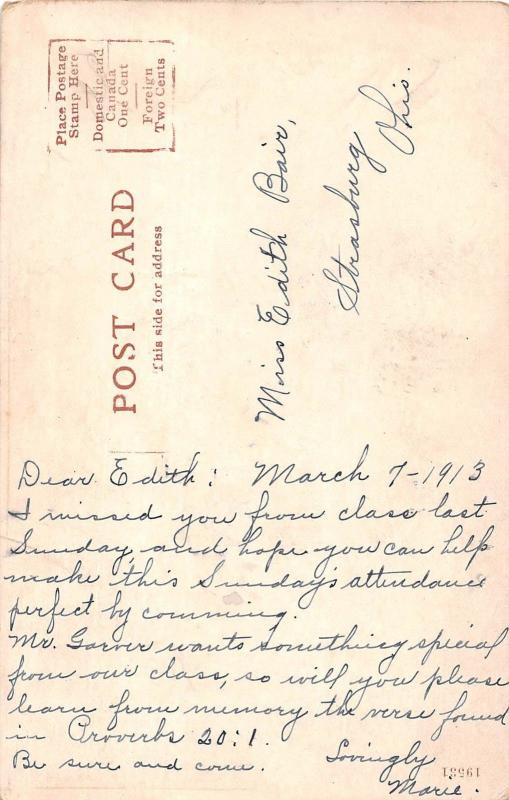 Place Postage
Stamp Here
Domestic and
Canada
One Cent
Foreign
Two Cents
POST CARD
This side for address
Miss Edith Bair,
Strasburg
Ohio.
Dear Edith: March 7-1913
I missed you from class last
Sunday and hope you can help
make this Sunday's attendance
perfect by comming.
Mr. Garver wants something special
from our class, so will you please
learn from memory the verse found
in Proverbs 20:1.
Be sure and come. Lovingly
Marie.
19531